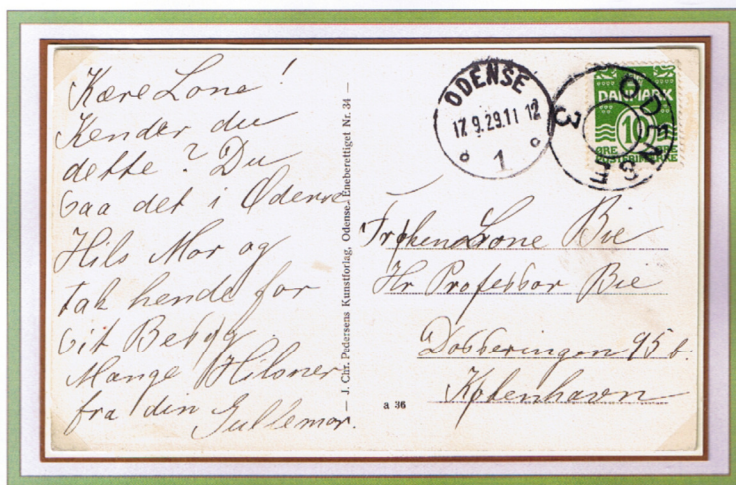 Kære Lone!
Kender du
dette? Du
saa det i Odense
Hils Mor og
tak hende for
sit Besøg.
Mange Hilsner
fra din Gullemor.
— J. Chr. Pedersens Kunstforlag, Odense. Eneberettiget Nr. 34 —
ODENSE
17.9.29.11 12
1
ODENSE
3
DANMARK
10
ØRE
ØRE
Frøken Lone Bie
Hr Professor Bie
Dosseringen 95 b.
København
a 36